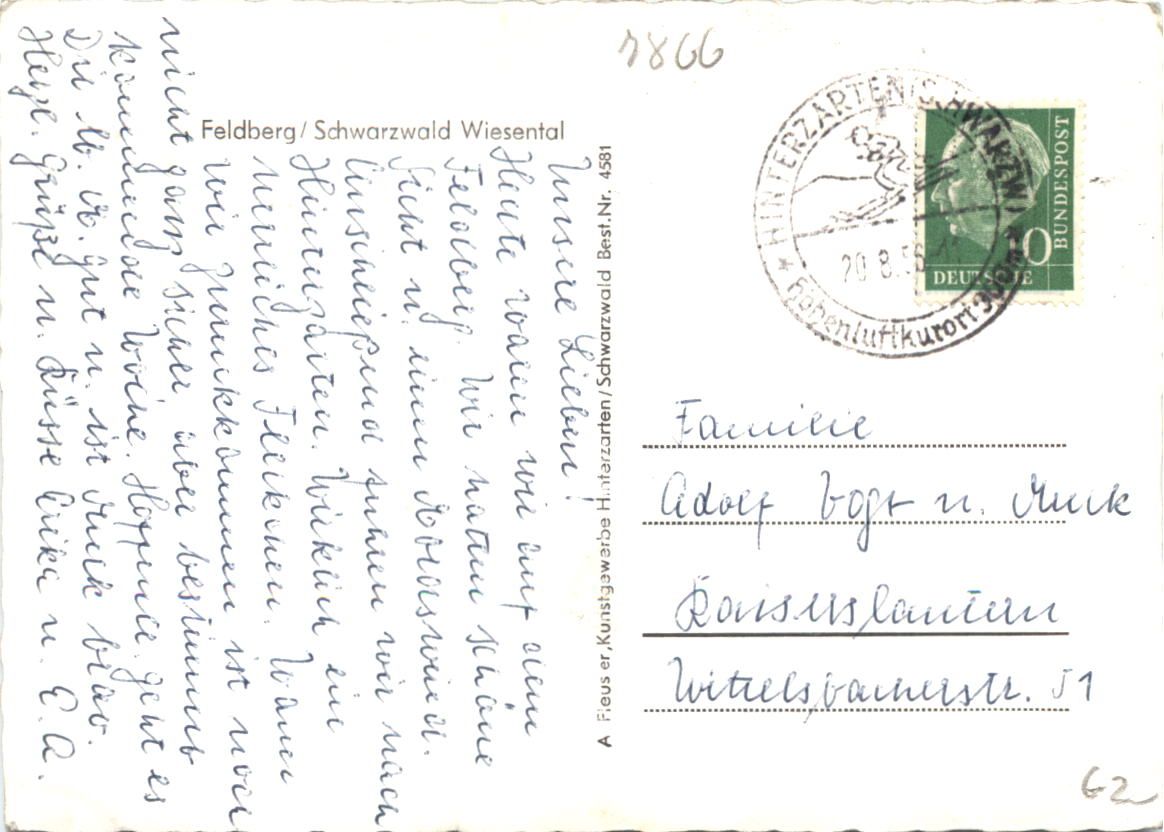 Feldberg / Schwarzwald Wiesental
Unsere Lieben!
Heute waren wir auf dem
Feldberg. Wir hatten schöne
Sicht u. einen
Anschließend fuhren wir nach
Hinterzarten. Wirklich ein
herrliches Fleckchen. Wann
wir zurückkommen ist noch
nicht ganz sicher aber bestimmt
kommende Woche. Hoffentl. geht es
Dir lb. A. gut u. ist Muck brav.
Herzl. Grüße u. Küsse Erika u. E. A.
A Fleuser, Kunstgewerbe Hinterzarten/Schwarzwald Best.Nr. 4581
7866
HINTERZARTEN (SCHWARZW)
20.8.56
Höhenluftkurort 900m
DEUTSCHE
BUNDESPOST
Familie
Adolf Vogt u. Muck
Kaiserslautern
Wittelsbacherstr. 51
62